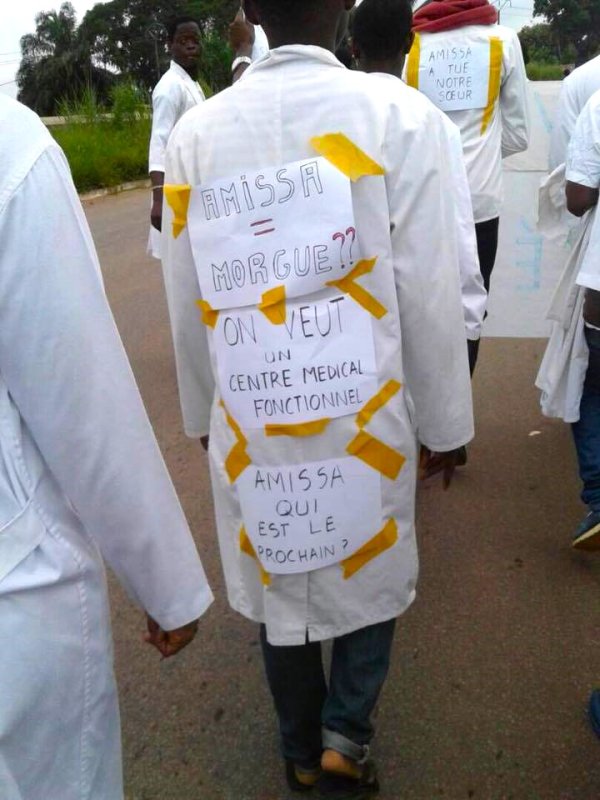 AMISSA
=
MORGUE??
ON VEUT
UN
CENTRE MEDICAL
FONCTIONNEL
AMISSA
QUI
EST LE
PROCHAIN?
AMISSA
A TUÉ
NOTRE
SŒUR